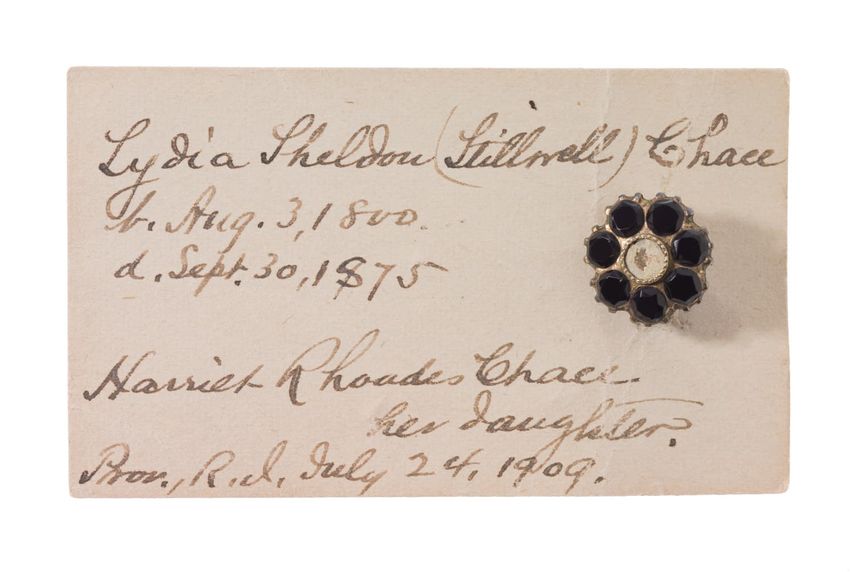 Lydia Sheldon (Stillwell) Chace
b. Aug. 3, 1800.
d. Sept. 30, 1875
Harriet Rhoades Chace
her daughter.
Prov., R.I. July 24, 1909.